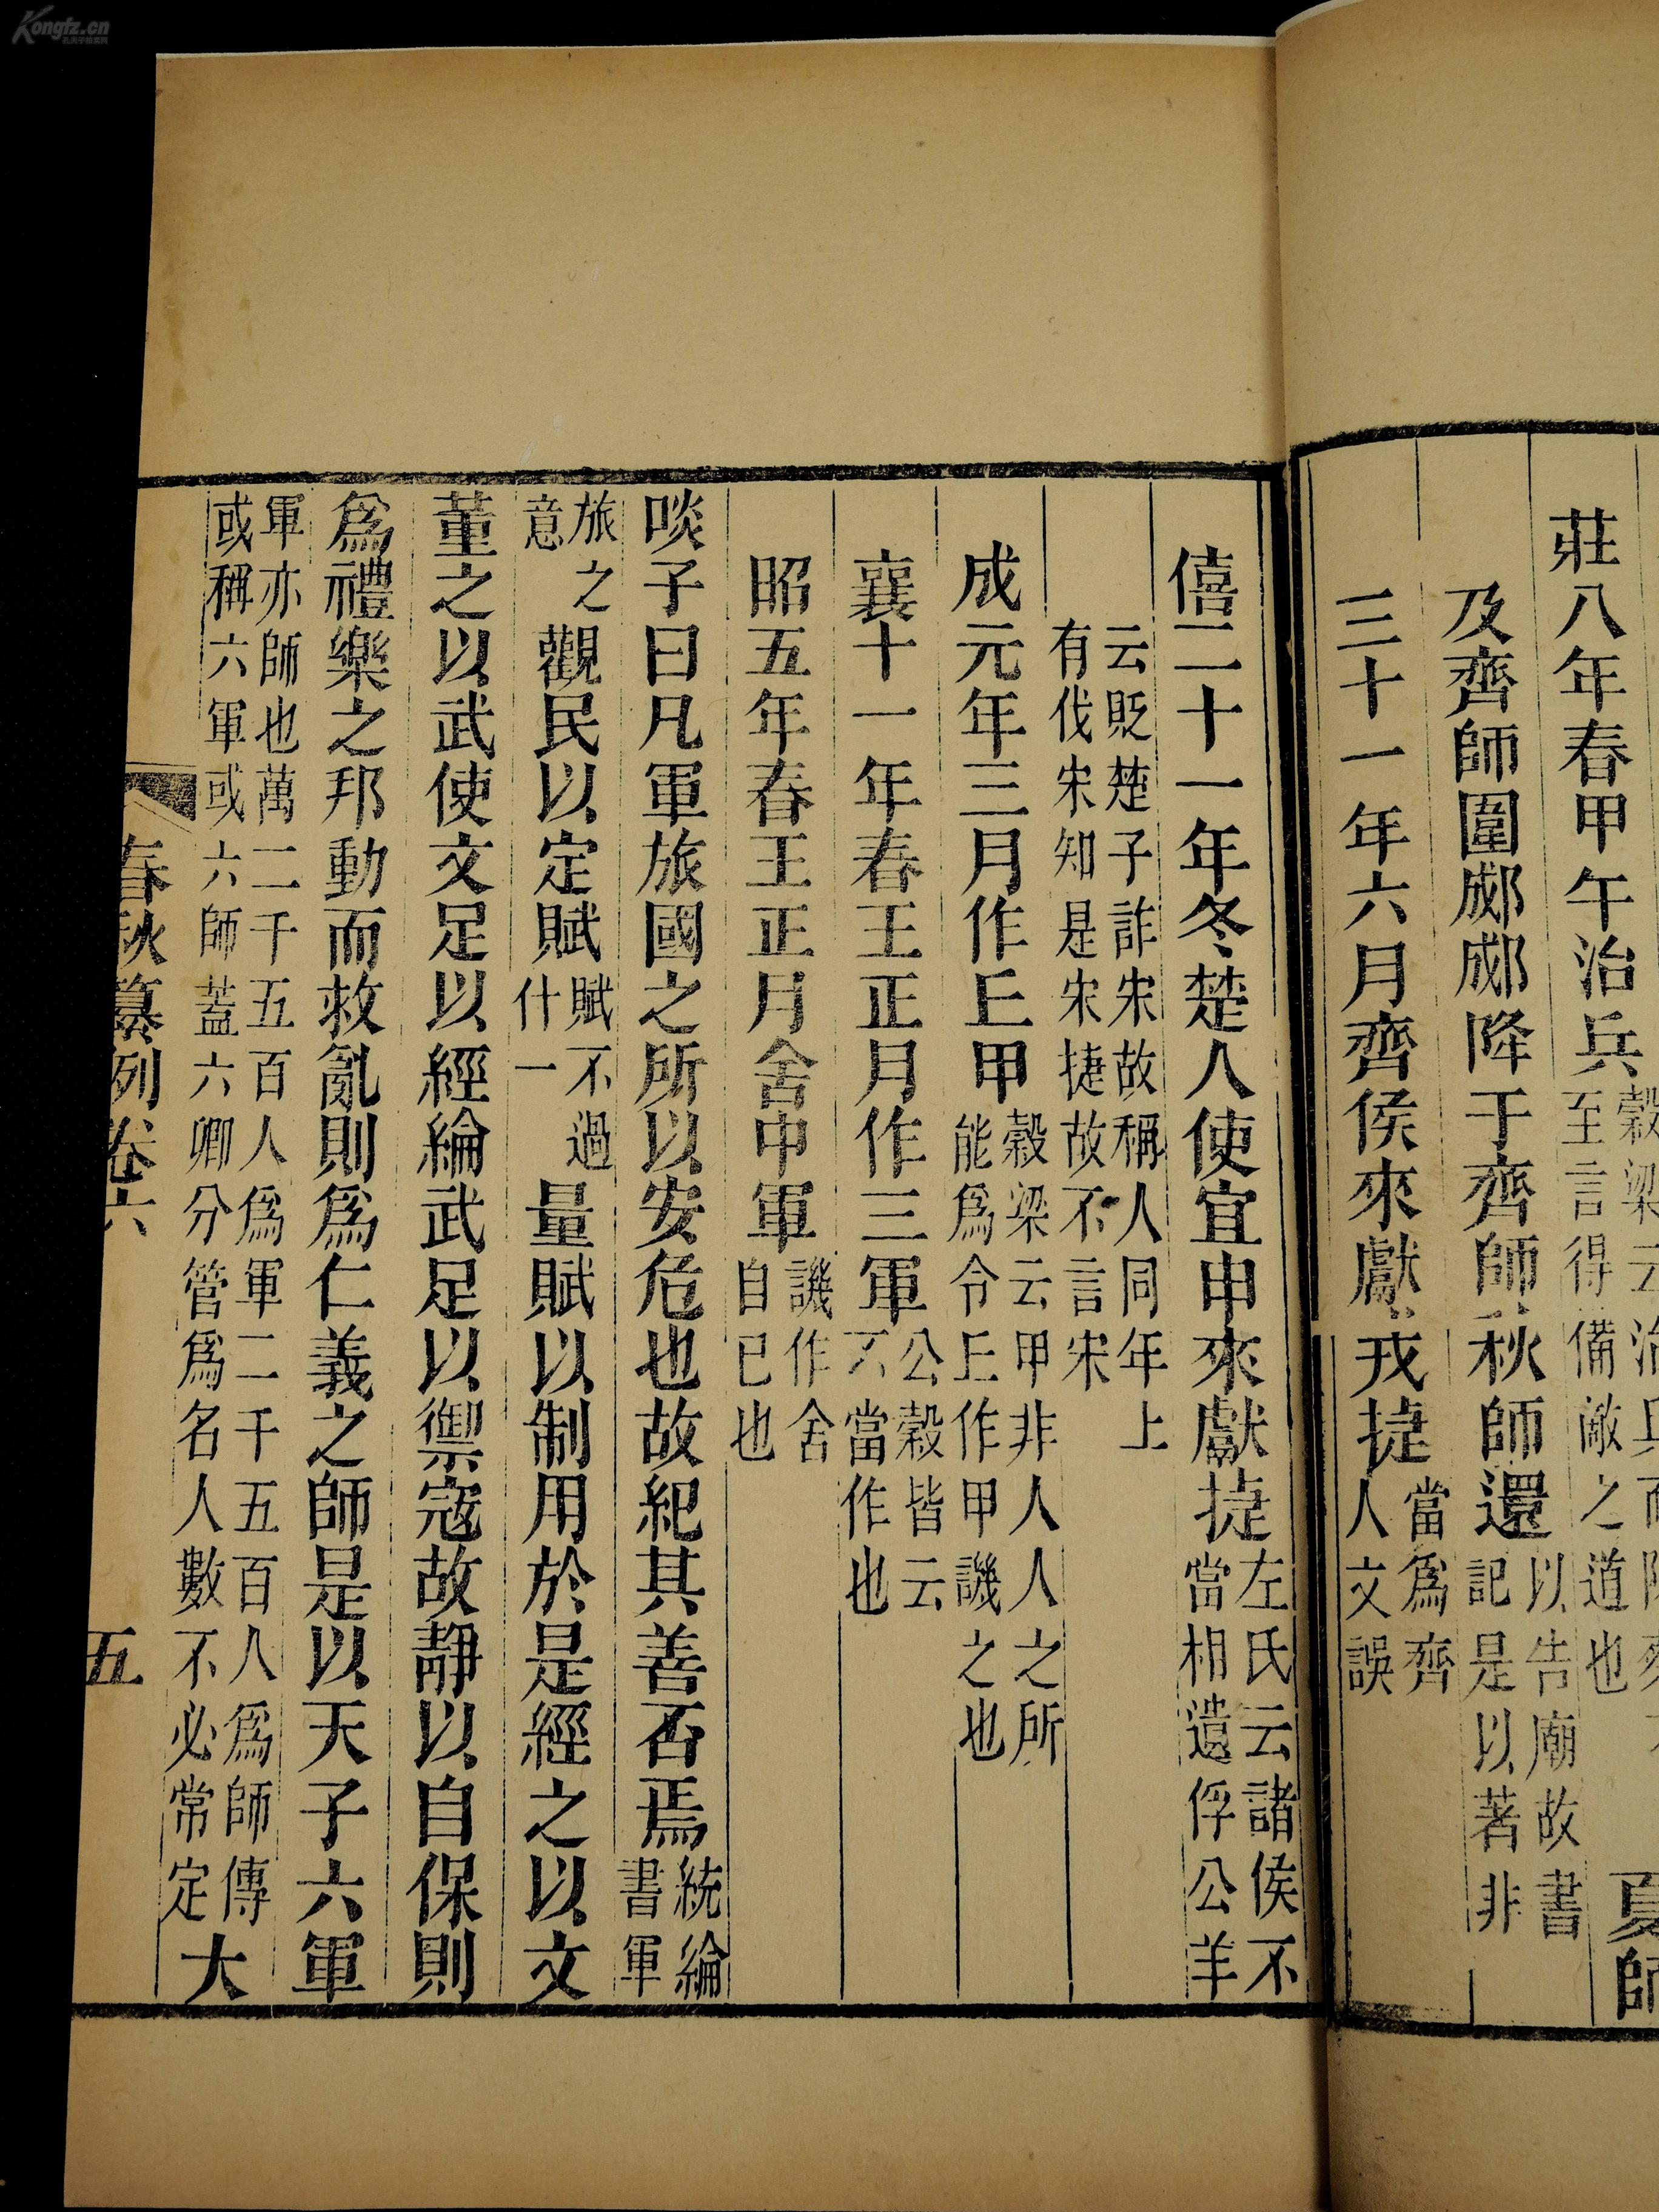 Kongfz.cn
孔夫子旧书网
夏師
莊八年春甲午治兵
穀梁云治兵而陳
至言得備敵之道也
及齊師圍郕郕降于齊師秋師還
以告廟故書
記是以著非
三十一年六月齊侯來獻戎捷
當爲齊
人文誤
僖二十一年冬楚人使宜申來獻捷
左氏云諸侯不
當相遺俘公羊
云貶楚子詐宋故稱人同年上
有伐宋知是宋捷故不言宋
成元年三月作丘甲
穀梁云甲非人人之所
能爲令丘作甲譏之也
襄十一年春王正月作三軍
公穀皆云
不當作也
昭五年春王正月舍中軍
譏作舍
自已也
啖子曰凡軍旅國之所以安危也故紀其善否焉
統綸
書軍
旅之
意
觀民以定賦
賦不過
什一
量賦以制用於是經之以文
董之以武使文足以經綸武足以禦寇故靜以自保則
爲禮樂之邦動而救亂則爲仁義之師是以天子六軍
軍亦師也萬二千五百人爲軍二千五百人爲師傳
或稱六軍或六師蓋六卿分管爲名人數不必常定
大
春秋纂例卷六
五